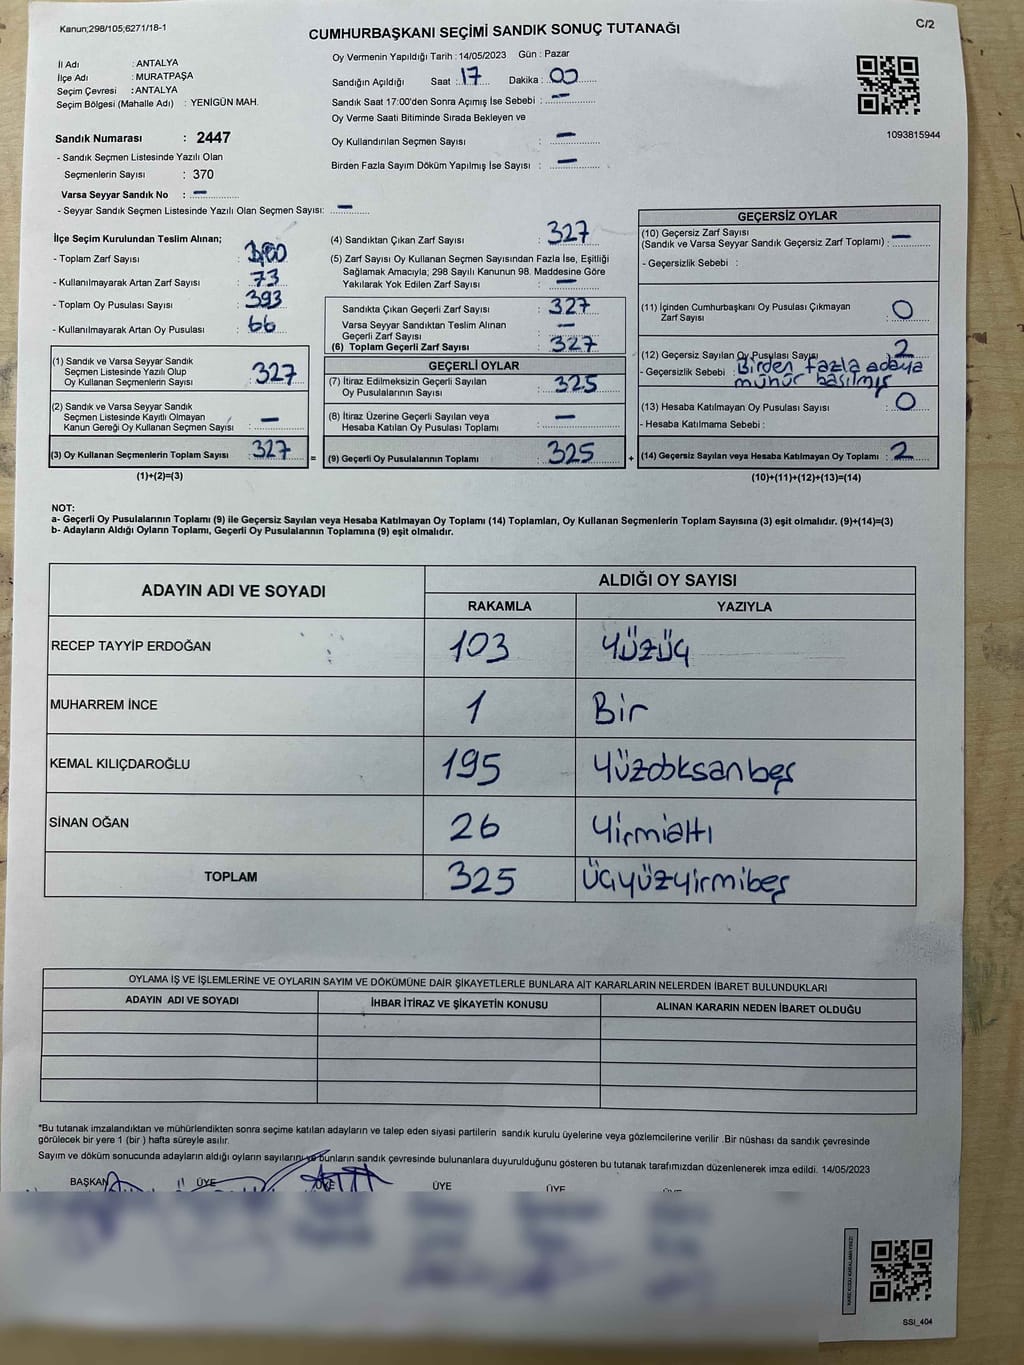 Kanun;298/105;6271/18-1
CUMHURBAŞKANI SEÇİMİ SANDIK SONUÇ TUTANAĞI
C/2
İl Adı : ANTALYA
İlçe Adı : MURATPAŞA
Seçim Çevresi : ANTALYA
Seçim Bölgesi (Mahalle Adı) : YENİGÜN MAH.
Sandık Numarası : 2447
- Sandık Seçmen Listesinde Yazılı Olan
Seçmenlerin Sayısı : 370
Varsa Seyyar Sandık No : —
- Seyyar Sandık Seçmen Listesinde Yazılı Olan Seçmen Sayısı: —
Oy Vermenin Yapıldığı Tarih : 14/05/2023 Gün : Pazar
Sandığın Açıldığı Saat : 17 Dakika : 00
Sandık Saat 17:00'den Sonra Açımış İse Sebebi : —
Oy Verme Saati Bitiminde Sırada Bekleyen ve
Oy Kullandırılan Seçmen Sayısı : —
Birden Fazla Sayım Döküm Yapılmış İse Sayısı : —
1093815944
İlçe Seçim Kurulundan Teslim Alınan;
- Toplam Zarf Sayısı :
- Kullanılmayarak Artan Zarf Sayısı : 73
- Toplam Oy Pusulası Sayısı : 393
- Kullanılmayarak Artan Oy Pusulası : 66
(1) Sandık ve Varsa Seyyar Sandık
Seçmen Listesinde Yazılı Olup
Oy Kullanan Seçmenlerin Sayısı : 327
(2) Sandık ve Varsa Seyyar Sandık
Seçmen Listesinde Kayıtlı Olmayan
Kanun Gereği Oy Kullanan Seçmen Sayısı : —
(3) Oy Kullanan Seçmenlerin Toplam Sayısı : 327
(1)+(2)=(3)
(4) Sandıktan Çıkan Zarf Sayısı : 327
(5) Zarf Sayısı Oy Kullanan Seçmen Sayısından Fazla İse, Eşitliği
Sağlamak Amacıyla; 298 Sayılı Kanunun 98. Maddesine Göre
Yakılarak Yok Edilen Zarf Sayısı : —
Sandıkta Çıkan Geçerli Zarf Sayısı : 327
Varsa Seyyar Sandıktan Teslim Alınan
Geçerli Zarf Sayısı : —
(6) Toplam Geçerli Zarf Sayısı : 327
GEÇERLİ OYLAR
(7) İtiraz Edilmeksizin Geçerli Sayılan
Oy Pusulalarının Sayısı : 325
(8) İtiraz Üzerine Geçerli Sayılan veya
Hesaba Katılan Oy Pusulası Toplamı : —
= (9) Geçerli Oy Pusulalarının Toplamı : 325
GEÇERSİZ OYLAR
(10) Geçersiz Zarf Sayısı
(Sandık ve Varsa Seyyar Sandık Geçersiz Zarf Toplamı) : —
- Geçersizlik Sebebi :
(11) İçinden Cumhurbaşkanı Oy Pusulası Çıkmayan
Zarf Sayısı : 0
(12) Geçersiz Sayılan Oy Pusulası Sayısı : 2
- Geçersizlik Sebebi : Birden fazla adaya
mühür basılmış
(13) Hesaba Katılmayan Oy Pusulası Sayısı : 0
- Hesaba Katılmama Sebebi :
+ (14) Geçersiz Sayılan veya Hesaba Katılmayan Oy Toplamı : 2
(10)+(11)+(12)+(13)=(14)
NOT:
a- Geçerli Oy Pusulalarının Toplamı (9) ile Geçersiz Sayılan veya Hesaba Katılmayan Oy Toplamı (14) Toplamları, Oy Kullanan Seçmenlerin Toplam Sayısına (3) eşit olmalıdır. (9)+(14)=(3)
b- Adayların Aldığı Oyların Toplamı, Geçerli Oy Pusulalarının Toplamına (9) eşit olmalıdır.
ADAYIN ADI VE SOYADI ALDIĞI OY SAYISI
RAKAMLA YAZIYLA
RECEP TAYYİP ERDOĞAN 103 Yüzüç
MUHARREM İNCE 1 Bir
KEMAL KILIÇDAROĞLU 195 Yüzdoksanbeş
SİNAN OĞAN 26 Yirmialtı
TOPLAM 325 Üçyüzyirmibeş
OYLAMA İŞ VE İŞLEMLERİNE VE OYLARIN SAYIM VE DÖKÜMÜNE DAİR ŞİKAYETLERLE BUNLARA AİT KARARLARIN NELERDEN İBARET BULUNDUKLARI
ADAYIN ADI VE SOYADI İHBAR İTİRAZ VE ŞİKAYETİN KONUSU ALINAN KARARIN NEDEN İBARET OLDUĞU
*Bu tutanak imzalandıktan ve mühürlendikten sonra seçime katılan adayların ve talep eden siyasi partilerin sandık kurulu üyelerine veya gözlemcilerine verilir .Bir nüshası da sandık çevresinde
görülecek bir yere 1 (bir ) hafta süreyle asılır.
Sayım ve döküm sonucunda adayların aldığı oyların sayılarını ve bunların sandık çevresinde bulunanlara duyurulduğunu gösteren bu tutanak tarafımızdan düzenlenerek imza edildi. 14/05/2023
BAŞKAN ÜYE ÜYE ÜYE ÜYE ÜYE
SSI_404